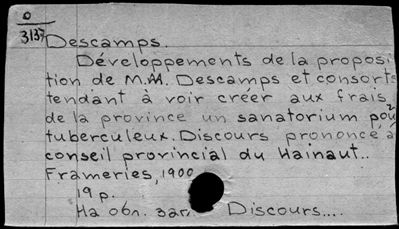 0
3137
Descamps.
Développements de la proposi
tion de M.M. Descamps et consorts
tendant à voir créer aux frais
de la province un sanatorium pou
tuberculeux. Discours prononcé à
conseil provincial du Hainaut..
Frameries, 1900
19 p.
На обл. заг. Discours....